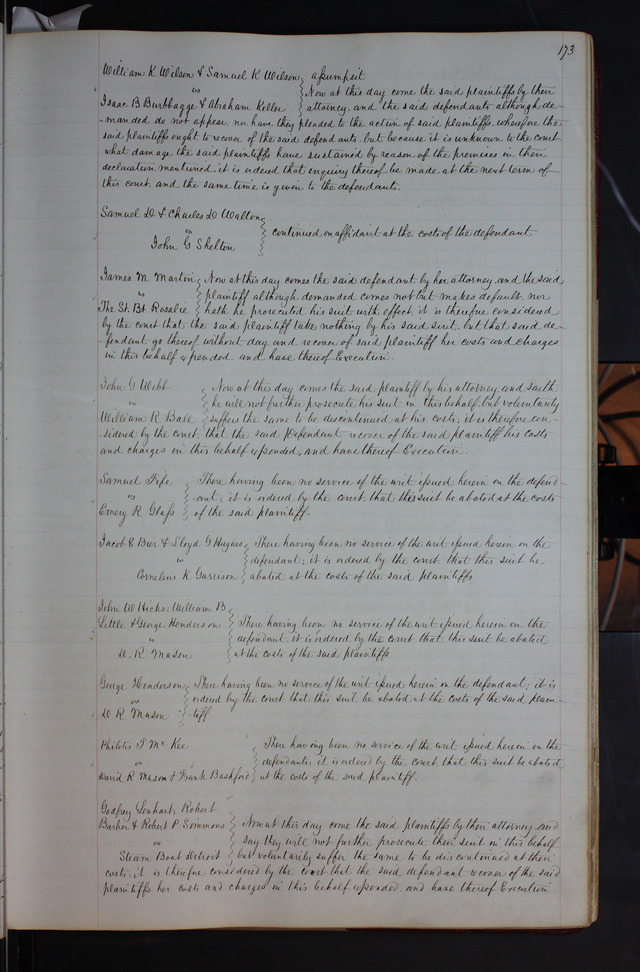 173
William K Wilson & Samuel K Wilson assumpsit
vs Now at this day come the said plaintiffs by their
Isaac B Burbbagge & Abraham Keller attorney, and the said defendants although de-
manded do not appear nor have they pleaded to the action of said plaintiffs wherefore the
said plaintiffs ought to recover of the said defendants. but because it is unknown to the court
what damage the said plaintiffs have sustained by reason of the premises in their
declaration mentioned; it is ordered that inquiry thereof be made at the next term of
this court. and the same time is given to the defendants.
Samuel D & Charles D Walton
vs continued on affidavit at the costs of the defendant
John G Shelton
James M Martin Now at this day comes the said defendant by her attorney and the said
vs plaintiff although demanded comes not but makes default. nor
The St. Bt. Rosalie hath he prosecuted his suit with effect. it is therefore considered
by the court that the said plaintiff take nothing by his said suit. but that said de-
fendant go thereof without day and recover of said plaintiff her costs and charges
in this behalf expended and have thereof Execution.
John G Webb Now at this day comes the said plaintiff by his attorney and saith
vs he will not further prosecute his suit in this behalf, but voluntarily
William R Ball suffers the same to be discontinued at his costs; it is therefore con-
sidered by the court, that the said Defendant recover of the said plaintiff his costs
and charges in this behalf expended, and have thereof Execution.
Samuel Fife There having been no service of the writ issued herein on the defend-
vs ant; it is ordered by the court, that this suit be abated at the costs
Emery R Glass of the said plaintiff.
Jacob C Bier & Lloyd G Hughes There having been no service of the writ issued herein on the
vs defendant; it is ordered by the court, that this suit be
Cornelius K Garrison abated at the costs of the said plaintiffs
John W Hicks; William B
Little & George Henderson There having been no service of the writ issued herein on the
vs defendant it is ordered by the court that this suit be abated
D. R Mason at the costs of the said plaintiffs
George Henderson There having been no service of the writ issued herein on the defendant; it is
vs ordered by the court that this suit be abated at the costs of the said plain-
D R Mason tiff
Philster T Mc Kee There having been no service of the writ issued herein on the
vs defendants; it is ordered by the court, that this suit be abated
David R Mason & Frank Bashford at the costs of the said plaintiff.
Godfrey Lenhart, Robert
Barber & Robert P Simmons Now at this day come the said plaintiffs by their attorney and
vs say they will not further prosecute their suit in this behalf
Steam Boat Detroit but voluntarily suffer the same to be discontinued at their
costs; it is therefore considered by the court that the said defendant recover of the said
plaintiffs her costs and charges in this behalf expended. and have thereof Execution